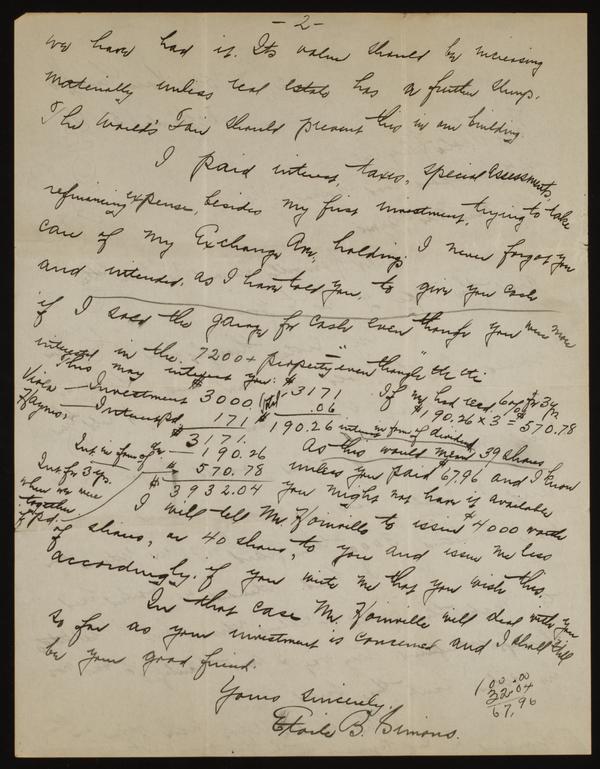 - 2 -
we have had it. Its value should be increasing
materially unless real estate has a further slump.
The World's Fair should prevent this in our building.
I paid interest, taxes, special assessments
refinancing expense, besides my first investment, trying to take
care of my Exchange Ave. holdings. I never forgot you
and intended, as I have told you, to give you cash
if I sold the garage for cash even though you were more
interested in the 7200+ property even though the
This may interest you:
Viola Haynes, — Investment $3000.
— Interest pd. 171
$3171.
Int. in form of — 190.26
Int. for 3 yrs. when we were together if pd. — $570.78
$3932.04
$3171
.06
190.26 interest in form of dividend
If my had recd. 6% for 3 yr
$190.26 x 3 = $570.78
As this would mean 39 shares
unless you paid $67.96 and I know
you might not have it available
I will tell Mr. Hoinville to issue $4000 worth
of shares, or 40 shares, to you and issue me less
accordingly if you write me that you wish this.
In that case Mr. Hoinville will deal with you
so far as your investment is concerned and I shall still
be your good friend.
Yours sincerely,
Etoile B. Simons.
100.00
32.04
67.96